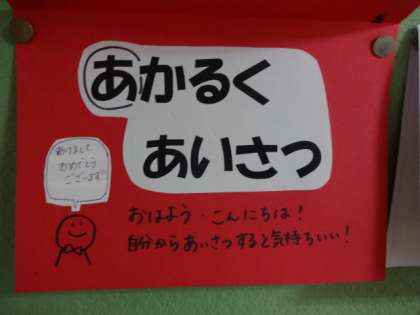 あかるく
あいさつ
あけまして
おめでとう
ございます
おはよう・こんにちは!
自分からあいさつすると気持ちいい!